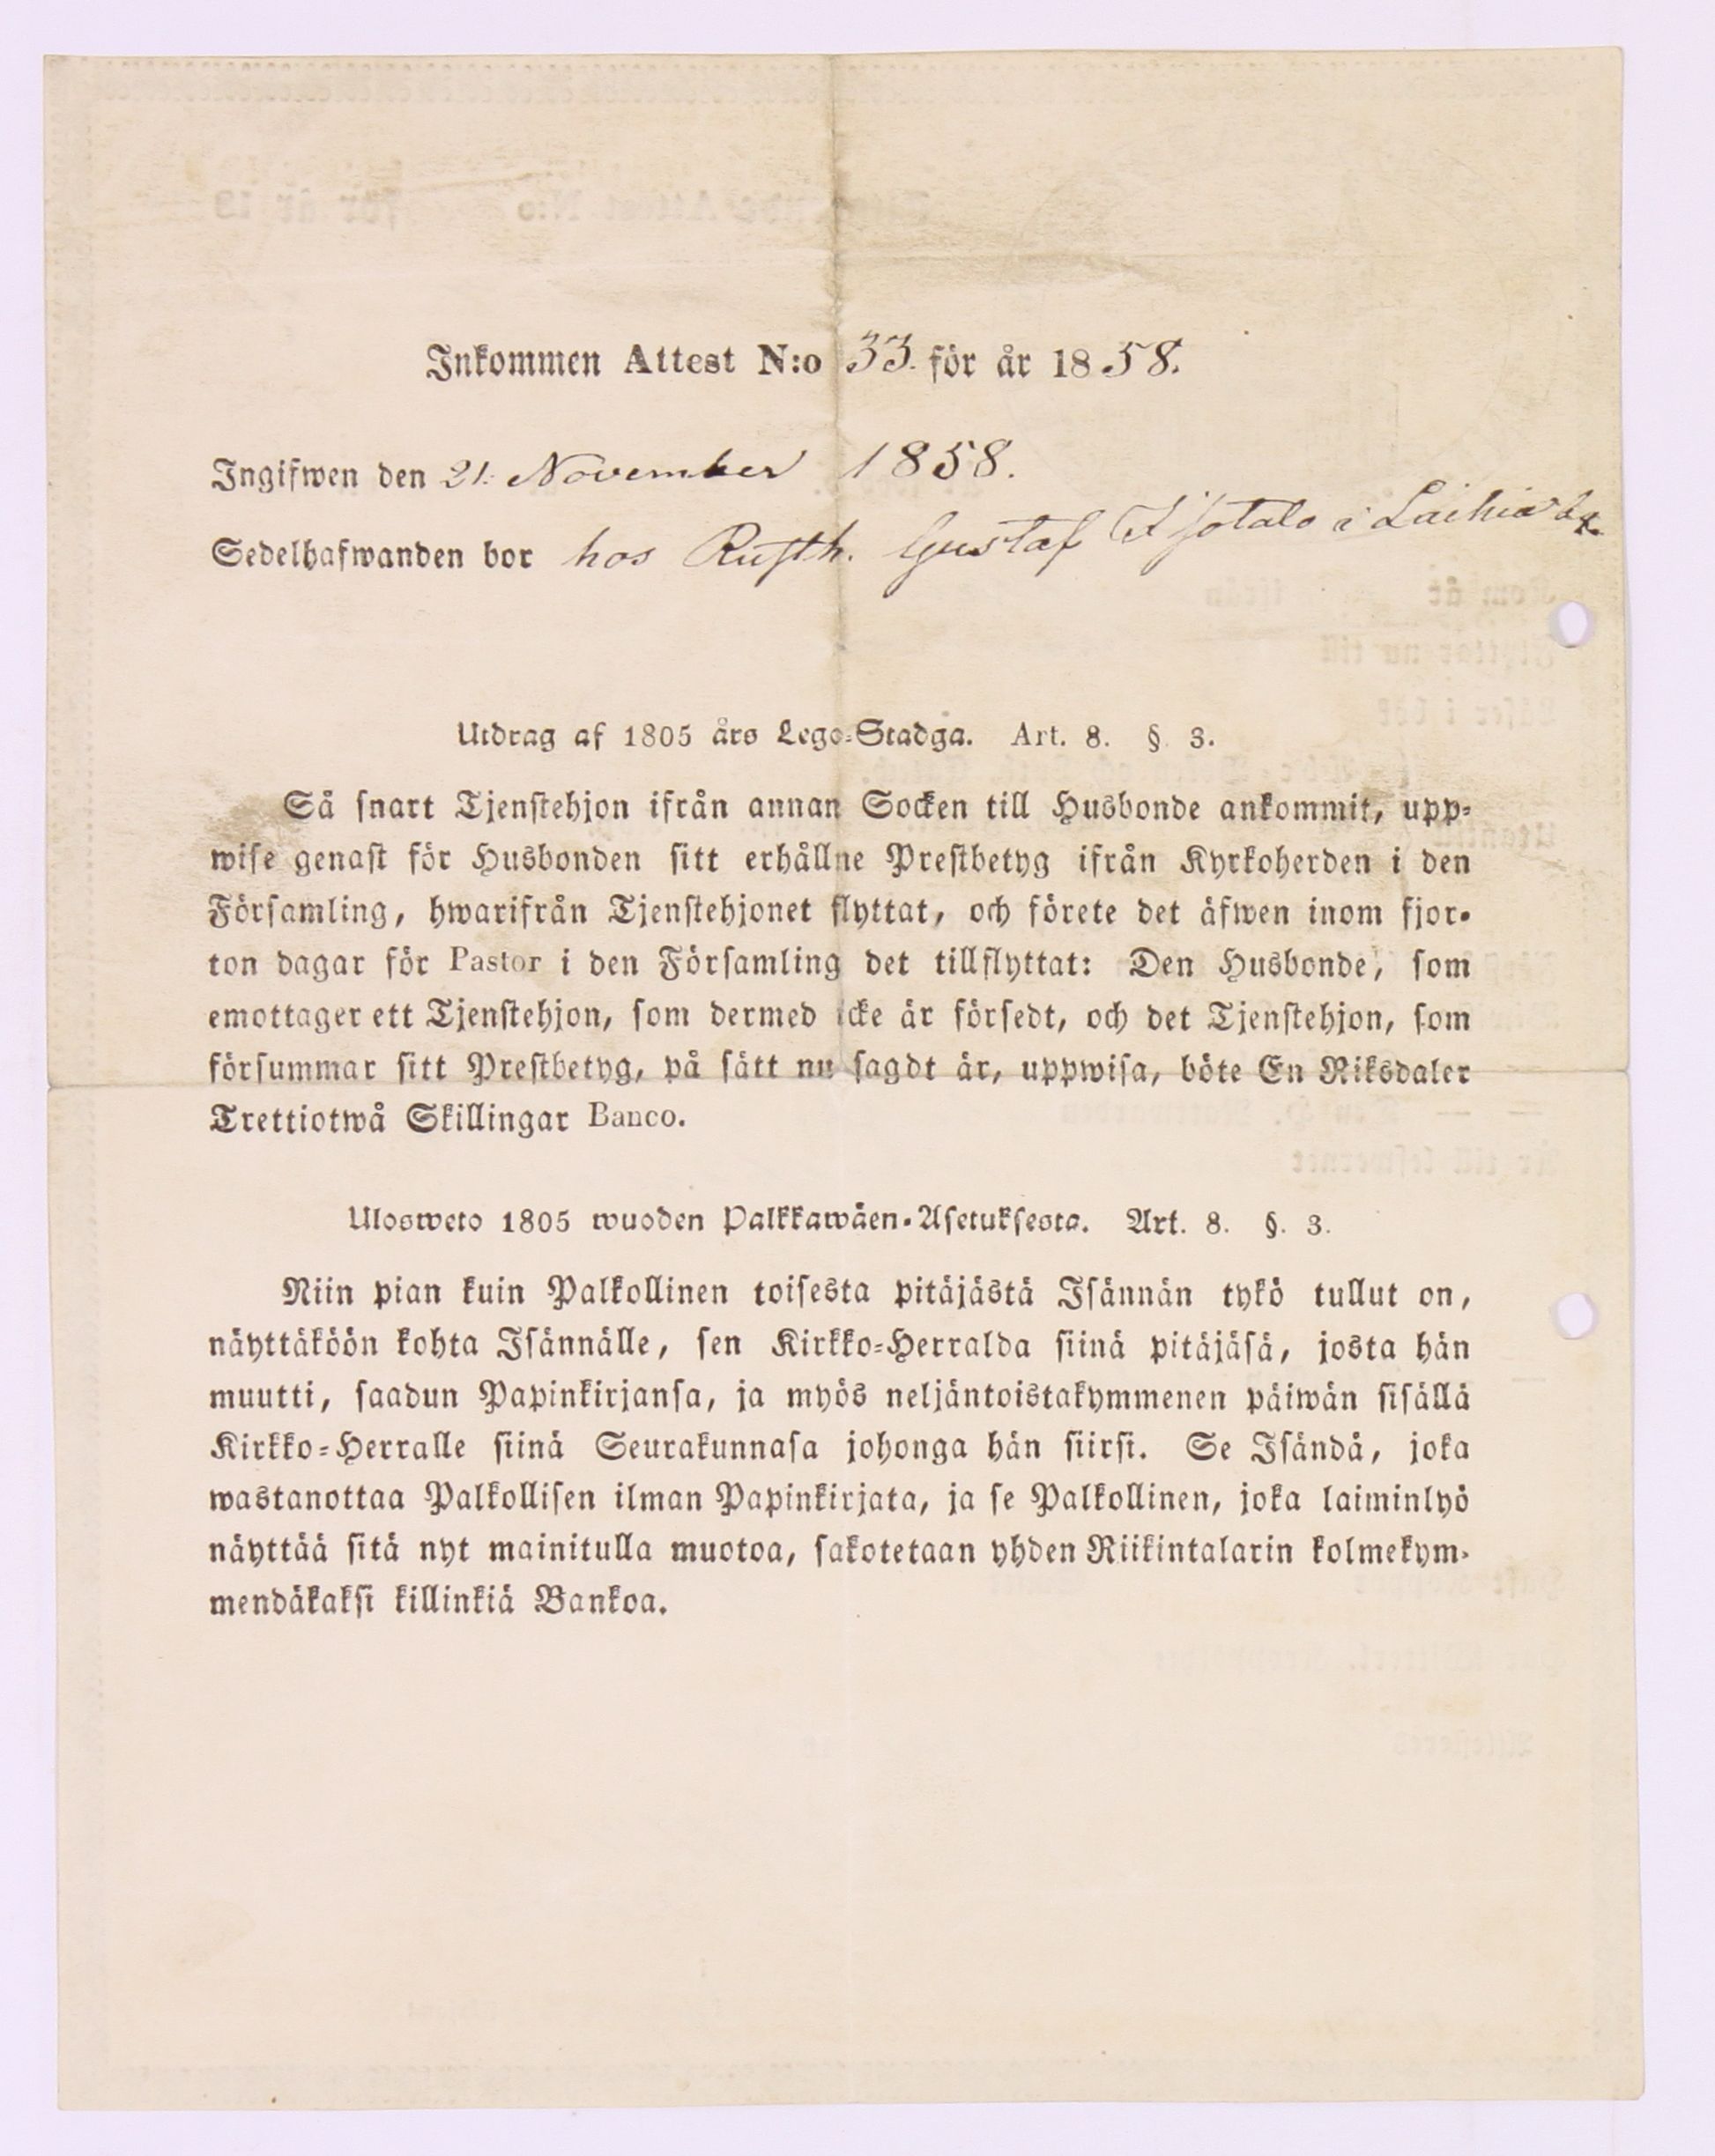 Inkommen Attest N:o 33. för år 1858.
Ingifwen den 21. November 1858.
Sedelhafwanden bor hos Rusth. Gustaf Isotalo i Laihia
Utdrag af 1805 års Lego-Stadga. Art. 8. § 3.
Så snart Tjenstehjon ifrån annan Socken till Husbonde ankommit, upp-
wise genast för Husbonden sitt erhållne Prestbetyg ifrån Kyrkoherden i den
Församling, hwarifrån Tjenstehjonet flyttat, och förete det äfwen inom fjor-
ton dagar för Pastor i den Församling det tillflyttat: Den Husbonde, som
emottager ett Tjenstehjon, som dermed icke är försedt, och det Tjenstehjon, som
försummar sitt Prestbetyg, på sätt nu sagdt är, uppwisa, böte En Riksdaler
Trettiotwå Skillingar Banco.
Ulosweto 1805 wuoden Palkkawäen-Asetuksesta. Art. 8. §. 3.
Niin pian kuin Palkollinen toisesta pitäjästä Isännän tykö tullut on,
näyttäköön kohta Isännälle, sen Kirkko-Herralda siinä pitäjäsä, josta hän
muutti, saadun Papinkirjansa, ja myös neljäntoistakymmenen päiwän sisällä
Kirkko-Herralle siinä Seurakunnasa johonga hän siirsi. Se Isändä, joka
wastanottaa Palkollisen ilman Papinkirjata, ja se Palkollinen, joka laiminlyö
näyttää sitä nyt mainitulla muotoa, sakotetaan yhden Riikintalarin kolmekym-
mendäkaksi killinkiä Bankoa.